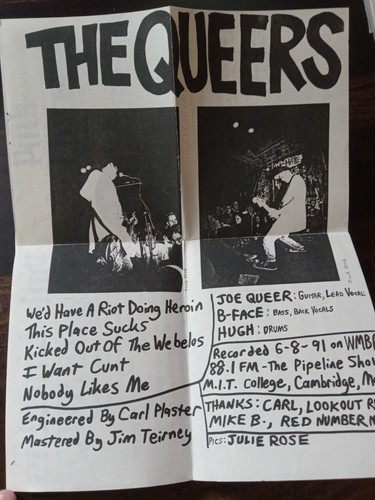 THE QUEERS
We'd Have A Riot Doing Heroin
This Place Sucks
Kicked Out Of The Webelos
I Want Cunt
Nobody Likes Me
Engineered By Carl Plaster
Mastered By Jim Teirney
JOE QUEER: GUITAR, LEAD VOCAL
B-FACE: BASS, BACK VOCALS
HUGH: DRUMS
Recorded 6-8-91 on WMB
88.1 FM - The Pipeline Sho
M.I.T. College, Cambridge, Ma
THANKS: CARL, LOOKOUT R
MIKE B., RED NUMBER N
PICS: JULIE ROSE